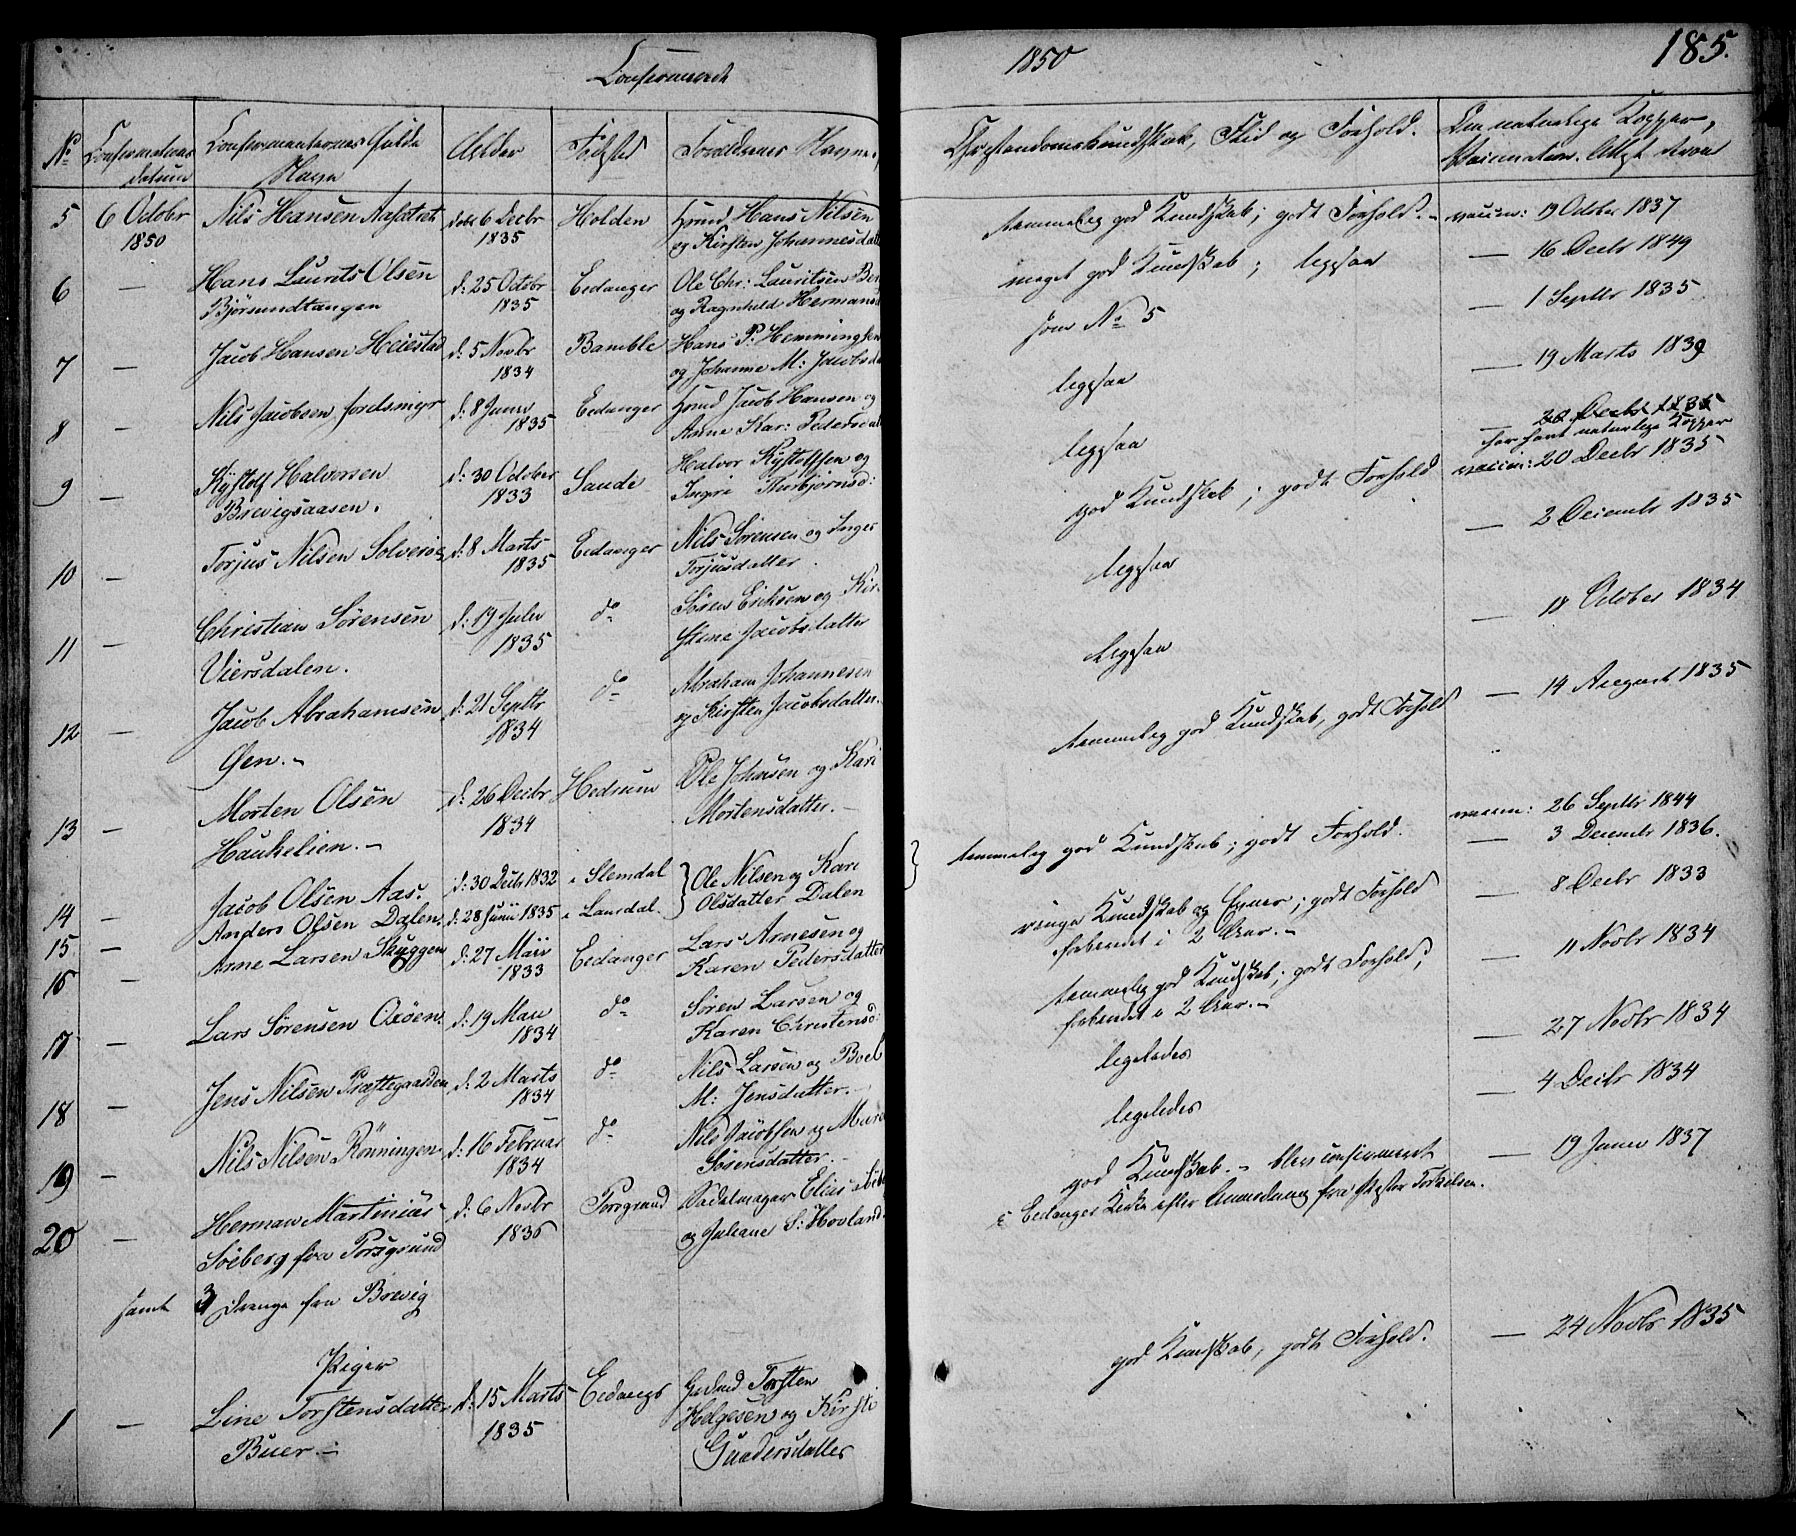 Confirmerede
1850
185.
No
Confirmations datum
Confirmanternes fulde Navn
Alder
Fødested
Forældrenes Navne
Christendomskundskab, Flid og Forhold.
Den naturlige Kopper, Vaccination. Attest derom
5 6 Octobr 1850 Nils Hansen Aasetret døbt 6 Decbr 1835 Holden Gmd Hans Nilsen og Kirsten Johannesdatt
temmelig god Kundskab; godt Forhold. - vaccin: 19 October 1837
6 — Hans Laurits Olsen Björsundtangen d: 25 Octobr 1835 Eidanger Ole Chr: Lauritsen og Ragnhild Hermans
meget god Kundskab; ligesaa — 16 Decbr 1849
7 — Jacob Hansen Heiestad d: 5 Novbr 1834 Bamble Hans P: Hemmingsen og Johanne M: Jacobsd
som No 5 — 1 Septbr 1835
8 — Nils Jacobsen Jordsmyr d: 8 Janu 1835 Eidanger Gmd Jacob Hansen og Anne Kar: Pedersdat
ligesaa — 19 Marts 1839
9 — Kjøstolf Halvorsen Brevigsaasen. d: 30 October 1833 Sande Halvor Kjøstolfsen og Ingri Thorbjørnsd:
ligesaa — 20 Decbr 1835
har havt naturlige Kopper
10 — Torjus Nilsen Solverød d: 8 Marts 1835 Eidanger Nils Sörensen og Inger Torjusdatter
god Kundskab; godt Forhold vaccin: 20 Decbr 1835
11 — Christian Sörensen Viersdalen. d: 19 Juli 1835 do Sören Eriksen og Kirstine Jacobsdatter
ligesaa — 2 Decembr 1835
12 — Jacob Abrahamsen Øen. - d: 21 Septbr 1834 do Abraham Johannesen og Kirsten Jacobsdatter.
ligesaa — 18 October 1834
13 — Morten Olsen Haukelien. - d: 26 Decbr 1834 Hedrum Ole Johnsen og Kari Mortensdatter. -
temmelig god Kundskab, godt Forhold — 14 August 1835
14 — Jacob Olsen Aas. d: 30 Decbr 1832 i Slemdal
15 — Anders Olsen Dalen. d: 28 Juni 1835 i Laurdal. } Ole Nilsen og Kari Olsdatter Dalen
} temmelig god Kundskab; godt Forhold. vaccin: 26 Septbr 1844
— 3 Decembr 1836.
16 — Arne Larsen Skyggen d: 27 Maii 1833 Eidanger Lars Arnesen og Karen Pedersdatter
ringe Kundskab og Evner; godt Forhold forberedt i 2 Aar. - — 8 Decbr 1833
17 — Lars Sörensen Oxöen. d: 19 Mai 1834 do Sören Larsen og Karen Christensd:
temmelig god Kundskab; godt Forhold; forberedt i 2 Aar. - — 11 Novbr 1834
18 — Jens Nilsen Præstegaarden d: 2 Marts 1834 do Nils Larsen og Boel M: Jensdatter. -
ligeledes — 27 Novbr 1834
19 — Nils Nilsen Rönningen d: 16 Februar 1834 do Nils Jacobsen og Maren Sörensdatter. -
ligeledes — 4 Decbr 1834
20 — Herman Martinius Söeberg fra Porsgrund d: 6 Novbr 1836 Porsgrund Sadelmager Elias og Juliane S: Hovland
god Kundskab. - blev confirmeret i Eidanger Kirke efter Anmodning fra Præsten — 19 Janu 1837
samt 3 Drenge fra Brevig
Piger
1 — Line Torstensdatter Buer - d: 15 Marts 1835 Eidanger Gmd Torsten Helgesen og Kirsti Gundersdatter
god Kundskab, godt Forhold. — 24 Novbr 1835